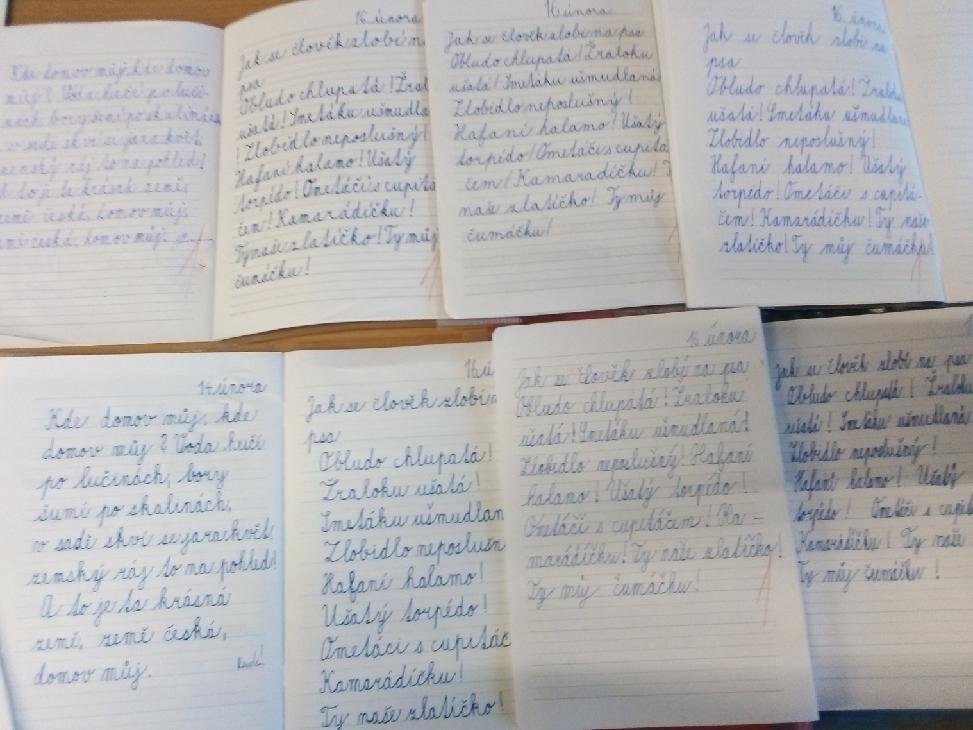 Kde domov můj, kde domov
můj? Voda hučí po luči-
nách, bory šumí po skalinách
v sadě skví se jara květ,
zemský ráj to na pohled!
A to je ta krásná země,
země česká, domov můj,
země česká, domov můj.
16. února
Jak se člověk zlobí n
psa
Obludo chlupatá! Žral
ušatá! Smetáku ušmudla
! Zlobidlo neposlušný!
Hafaní halamo! Ušatý
torpédo! Ometáči s cupitá
čem! Kamarádíčku!
Ty naše zlatíčko! Ty můj
čumáčku!
16 února
Jak se člověk zlobí na psa
Obludo chlupatá! Žraloku
ušatá! Smetáku ušmudlaná
Zlobidlo neposlušný!
Hafaní halamo! Ušatý
torpédo! Ometáči s cupitá
čem! Kamarádíčku! T
naše zlatíčko! Ty můj
čumáčku!
16. února
Jak se člověk zlobí na
psa
Obludo chlupatá! Žralok
ušatá! Smetáku ušmudlan
Zlobidlo neposlušný!
Hafaní halamo! Ušatý
torpédo! Ometáči s cupitá-
čem! Kamarádíčku! Ty naše
zlatíčko! Ty můj čumáčku!
14 února
Kde domov můj, kde
domov můj? Voda hučí
po lučinách, bory
šumí po skalinách,
v sadě skví se jara květ,
zemský ráj to na pohled!
A to je ta krásná
země, země česká,
domov můj.
16 ú
Jak se člověk zlobí n
psa
Obludo chlupatá!
Žraloku ušatá!
Smetáku ušmudlan
Zlobidlo neposlušn
Hafaní halamo!
Ušatý torpédo!
Ometáči s cupitáč
Kamarádíčku!
Ty naše zlatíčko!
16 února
Jak se člověk zlobý na psa
Obludo chlupatá! Žraloku
ušatá! Smetáku ušmudlaná!
Zlobidlo neposlušný! Hafaní
halamo! Ušatý torpédo!
Ometáči s cupitáčem! Ka-
marádíčku! Ty naše zlatíčko!
Ty můj čumáčku!
Jak se člověk zlobí na psa
Obludo chlupatá! Žralok
ušatá! Smetáku ušmudlaná
Zlobidlo neposlušný!
Hafaní halamo! Ušatý
torpédo! Ometáči s cupit
Kamarádíčku! Ty naše
Ty můj čumáčku!